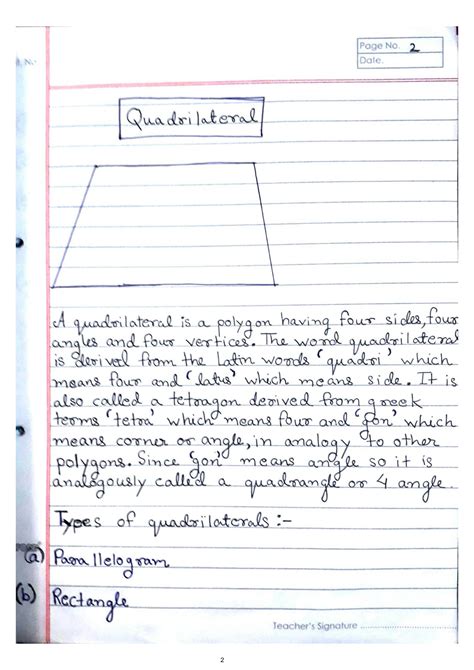 Page No. 2
Date.
Quadrilateral
A quadrilateral is a polygon having four sides, four
angles and four vertices. The word quadrilateral
is derived from the Latin words 'quadri' which
means four and 'latus' which means side. It is
also called a tetragon derived from greek
terms 'tetra' which means four and 'gon' which
means corner or angle, in analogy to other
polygons. Since 'gon' means angle so it is
analogously called a quadrangle or 4 angle.
Types of quadrilaterals :-
(a) Parallelogram
(b) Rectangle
Teacher's Signature
2